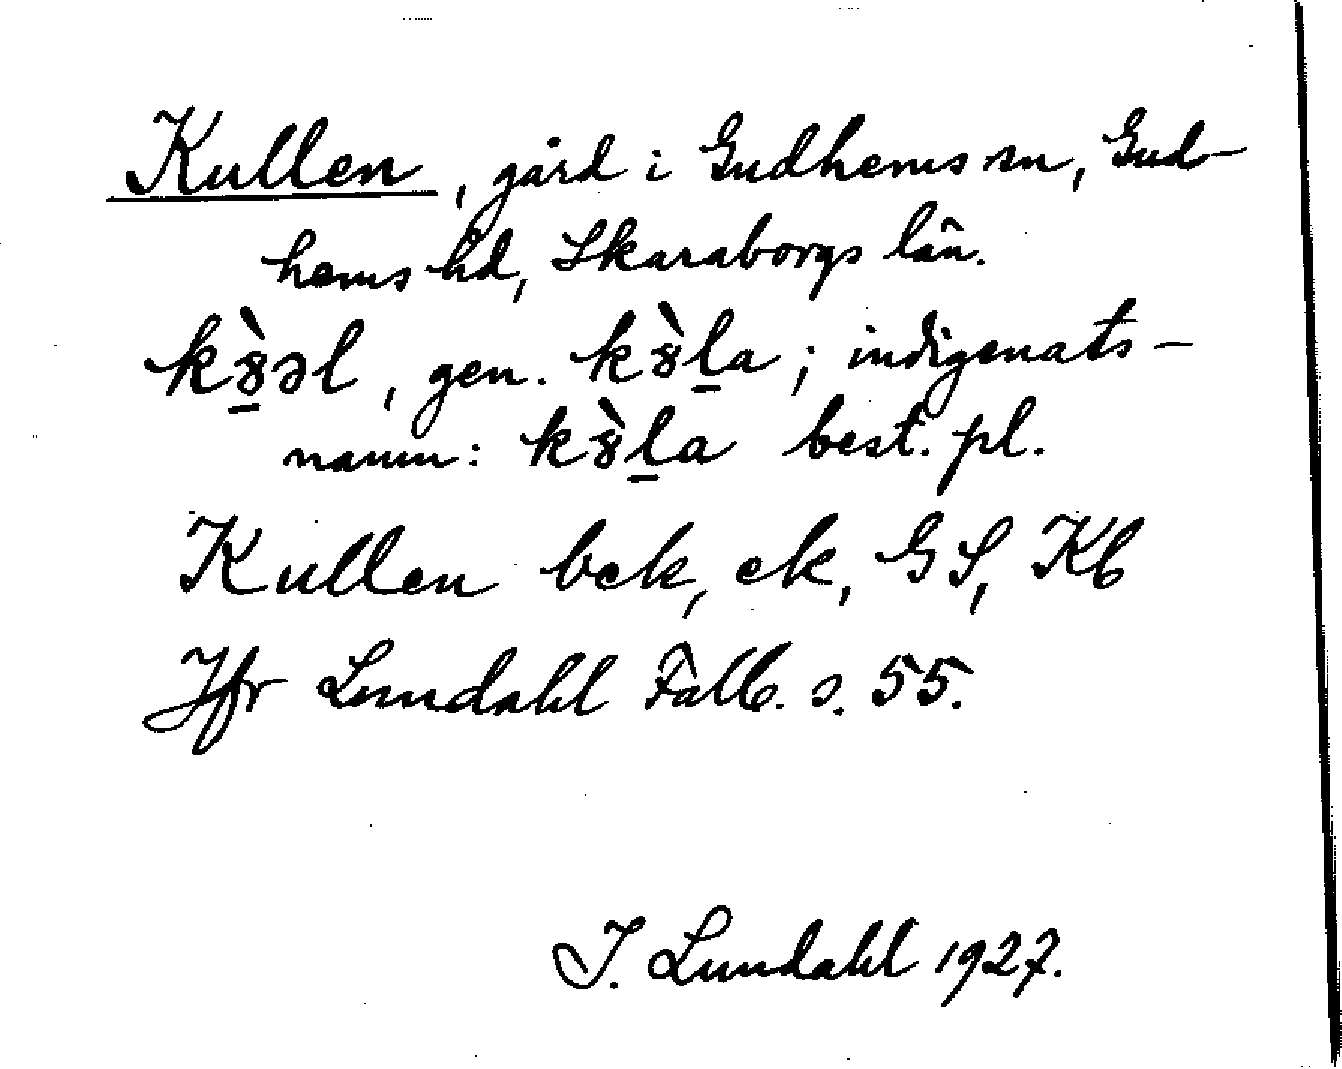 Kullen, gård i Gudhems sn, Gud-
hems hd, Skaraborgs län.
k8̱̀əl, gen. k8̀ḻa; indigenats-
namn: k8̀ḻa best. pl.
Kullen bck, ek, GS, Kb
Jfr Lundahl Falb. s. 55.
I. Lundahl 1927.